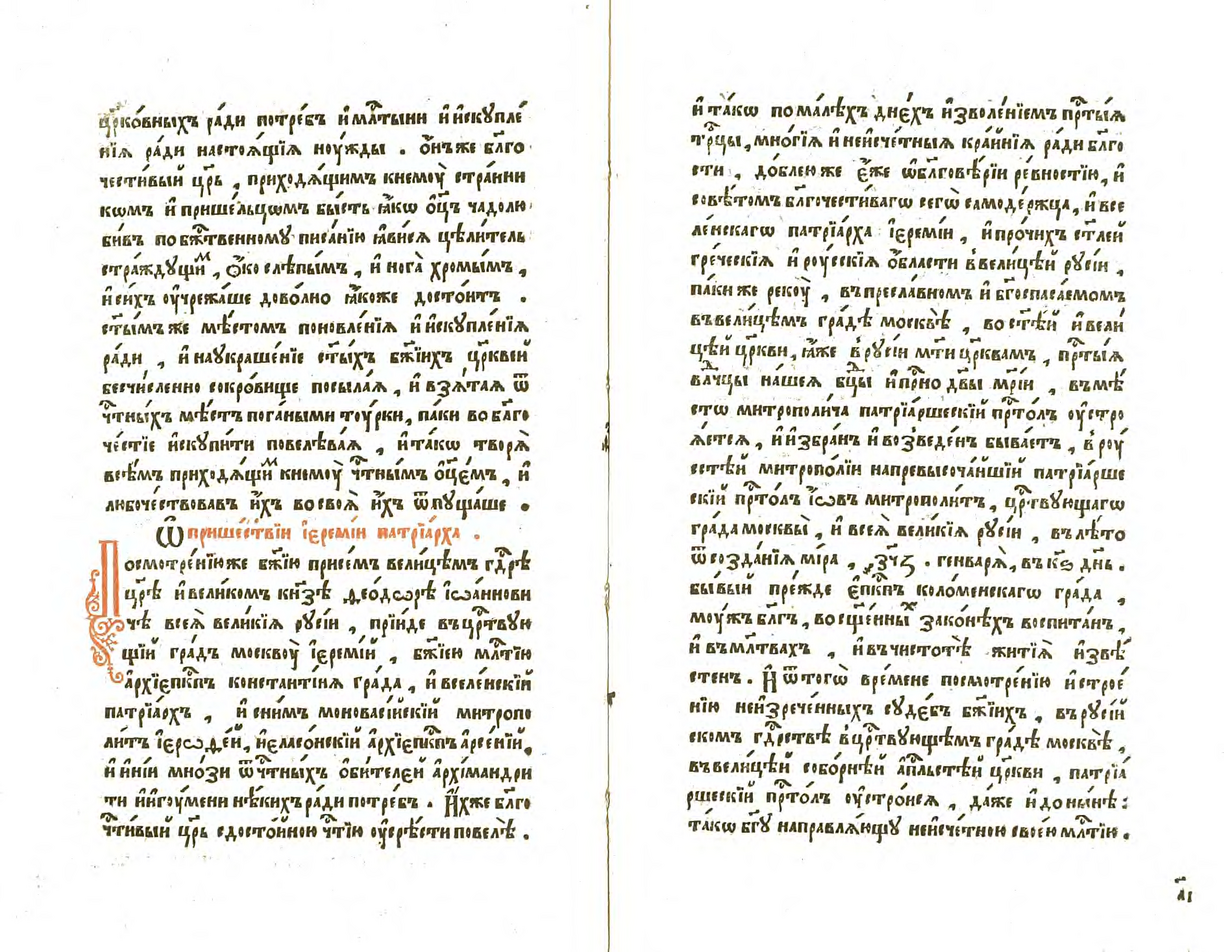 црко́вныхъ ра́ди потре́бъ и҆ мл҃тыни и҆ и҆скꙋпле́
нїѧ ра́ди настоѧ́щїѧ ноу́жды . ѻ҆́нъже бл҃го
чести́вый цр҃ь , приходѧ́щимъ кнемоу̀ стра́нни
кѡмъ и҆ прише́льцѡмъ бы́сть ꙗ҆́кѡ ѻ҆ц҃ъ чадолю
би́въ по бж҃твенномꙋ писа́нїю ꙗ҆ви́сѧ цѣли́тель
стра́ждꙋщиⷨ , ѻ҆́ко слѣпы́мъ , и҆ нога̀ хромы́мъ ,
и҆ си́хъ оу҆чрежа́ше дово́лно ꙗ҆́коже досто́итъ .
ст҃ы́мъ же мѣ́стомъ поновле́нїѧ и҆ и҆скꙋпле́нїѧ
ра́ди , и҆ наꙋкраше́нїе ст҃ы́хъ бж҃їихъ цр҃кве́й
бесчи́сленно сокро́вище посыла́ѧ , и҆ взѧ́таѧ ѿ
чⷭ҇тны́хъ мѣ́стъ пога́ными тоу́рки, па́ки во бл҃го
че́стїе и҆скꙋпи́ти повелѣва́ѧ , и҆ та́кѡ творѧ̀
всѣ́мъ приходѧ́щиⷨ кнемоу̀ чⷭ҇тны́мъ ѻ҆ц҃е́мъ , и҆
любоче́ствовавъ и҆́хъ во своѧ̀ и҆́хъ ѿпꙋща́ше .
Ѿ прише́ствїи і҆єремі́и патрїа́рха .
Посмотре́нїю же бж҃їю при се́мъ вели́цѣмъ гдⷭ҇рѣ̀
цр҃ѣ̀ и҆ вели́комъ кн҃зѣ ѳео́дѡрѣ і҆ѡа́ннови
чѣ всеѧ̀ вели́кїѧ рꙋсі́и , прїи́де въ црⷭ҇твꙋю
щїй гра́дъ москвоу̀ і҆єремі́й , бж҃їею млⷭ҇тїю
а҆рхїєпⷭ҇кпъ константі́нѧ гра́да , и҆ вселе́нскїй
патрїа́рхъ , и҆ сни́мъ моновасі́йскїй митропо
ли́тъ і҆єрѡѳе́й, и҆ єласо́нскїй а҆рхїєпⷭ҇кпъ а҆рсе́нїй,
и҆ и҆ні́и мно́зи ѿ чⷭ҇тны́хъ ѻ҆би́телєй а҆рхїмандри
ти и҆ и҆гоу́мени нѣ́кихъ ра́ди потре́бъ . И҆́хже бл҃го
чⷭ҇ти́вый цр҃ь с досто́йною чⷭ҇тїю оу҆срѣ́сти повелѣ̀ .
и҆ та́кѡ по ма́лѣхъ дне́хъ и҆зволе́нїемъ прⷭ҇ты́ѧ
трⷪ҇цы, мно́гїѧ и҆ неисче́тныѧ кра́йнїѧ ра́ди бл҃го
сти , до́блею же є҆́же ѡ҆ бл҃говѣ́рїи ре́вностїю , и҆
совѣ́томъ бл҃гочести́вагѡ сегѡ̀ самоде́ржца , и҆ все
ле́нскагѡ патрїа́рха і҆єремі́и , и҆ про́чихъ ст҃лей
гре́ческїѧ и҆ роу́сскїѧ ѻ҆́бласти в вели́цѣй рꙋсі́и ,
па́ки же рекоу̀ , въ пресла́вномъ и҆ бг҃оспаса́емомъ
въ вели́цѣмъ гра́дѣ москвѣ̀ , во ст҃ѣ́й и҆ вели
цѣй цр҃кви , ꙗ҆́же в рꙋсі́и мт҃и цр҃квамъ , прⷭ҇ты́ѧ
влⷣчцы на́шеѧ бц҃ы и҆ прⷭ҇но дв҃ы мр҃і́и , въ мѣ́
сто митрополи́ча патрїа́ршескїй прⷭ҇то́лъ оу҆стро
ѧ́етсѧ , и҆ и҆збра́нъ и҆ возведе́нъ быва́етъ , в роу́
сстѣй митропо́лїи напревысоча́йшїй патрїа́рше
скїй прⷭ҇то́лъ і҆́ѡвъ митрополи́тъ , црⷭ҇твꙋющагѡ
гра́да москвы̀ , и҆ всеѧ̀ вели́кїѧ рꙋсі́и , въ лѣ́то
ѿ созда́нїѧ мі́ра , ҂зч҃з . генварѧ̀ , въ к҃ѕ дн҃ь .
бы́вый пре́жде є҆пⷭ҇кпъ коло́менскагѡ гра́да ,
моу́жъ бл҃гъ , во сщ҃е́нныⷯ зако́нѣхъ воспита́нъ ,
и҆ въ мл҃твахъ , и҆ въ чистотѣ̀ житїѧ̀ и҆звѣ́
стенъ . И҆ ѿ тогѡ̀ вре́мене по смотре́нїю и҆ строе́
нїю неизрече́нныхъ сꙋде́бъ бж҃їихъ , въ рꙋсі́й
скомъ гдⷭ҇рствѣ в црⷭ҇твꙋющемъ гра́дѣ москвѣ̀ ,
въ вели́цѣй собо́рнѣй а҆пⷭ҇льстѣй цр҃кви , патрїа́
ршескїй прⷭ҇то́лъ оу҆стро́исѧ , да́же и҆ до нн҃ѣ :
та́кѡ бг҃ꙋ направлѧ́ющꙋ неисче́тною свое́ю млⷭ҇тїю .
а҃і